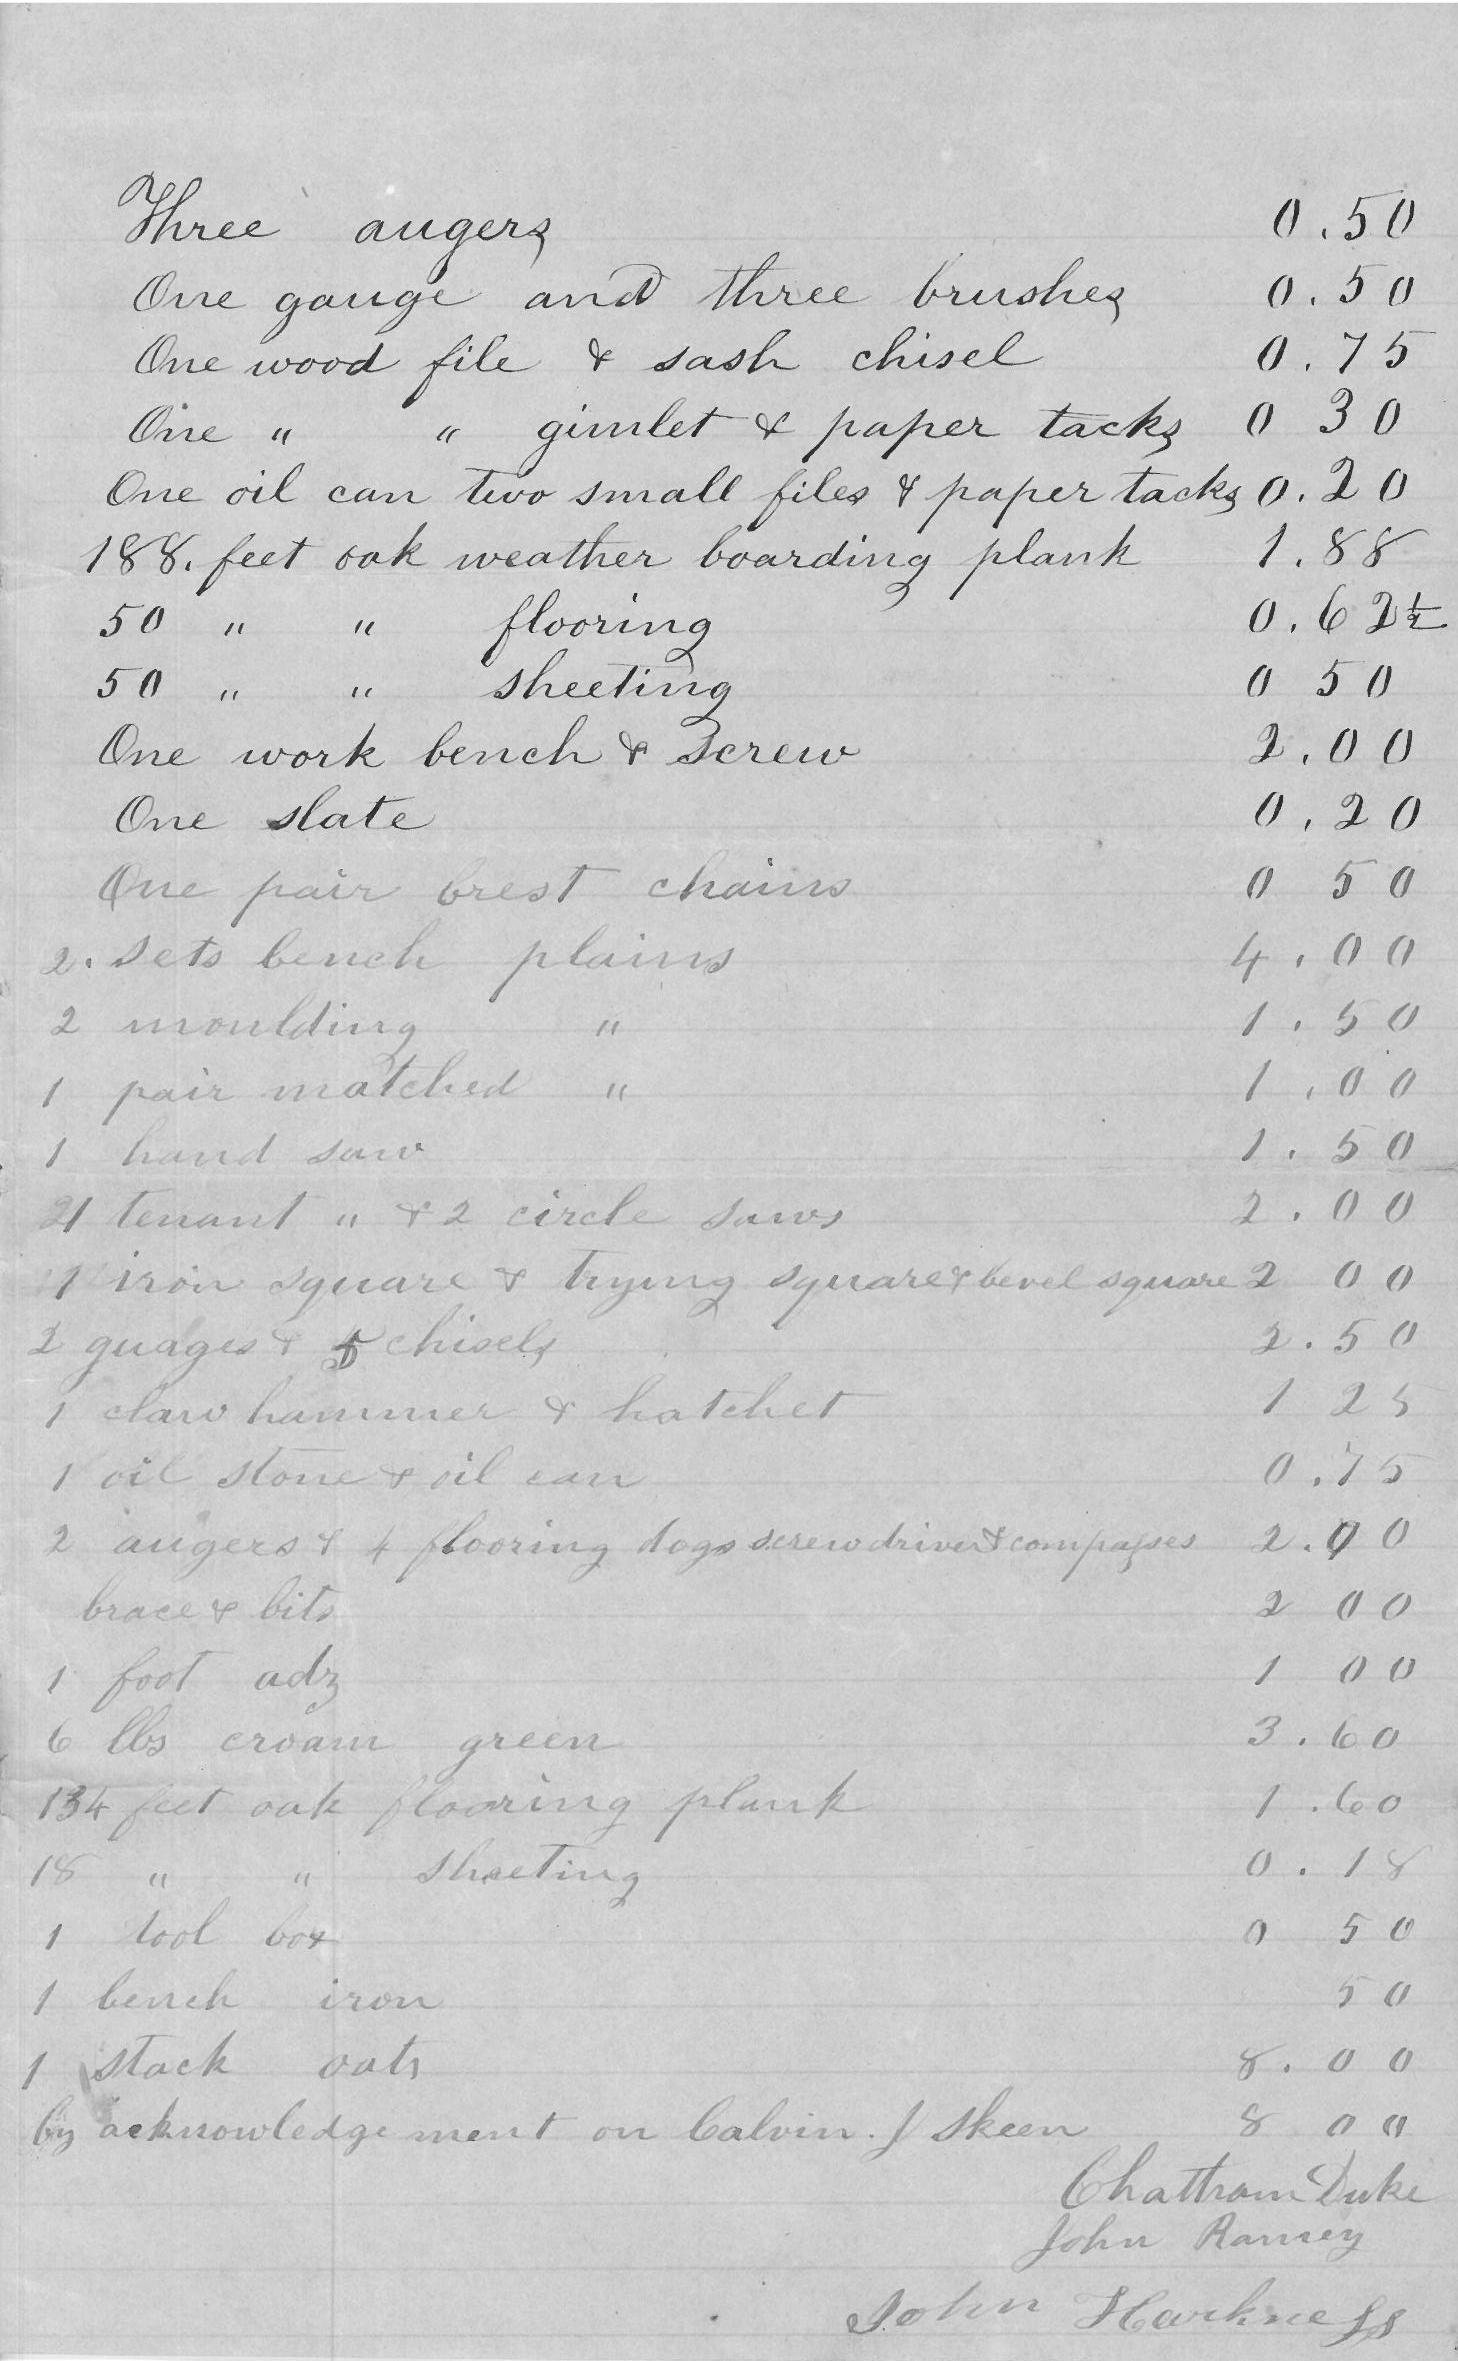 Three augers 0.50
One gauge and three brushes 0.50
One wood file & sash chisel 0.75
One " " gimlet & paper tacks 0 30
One oil can two small files & paper tacks 0.20
188. feet oak weather boarding plank 1.88
50 " " flooring 0.62½
50 " " sheeting 0 50
One work bench & screw 2.00
One slate 0.20
One pair brest chains 0 50
2. sets bench plains 4.00
2 moulding " 1.50
1 pair matched " 1.00
1 hand saw 1.50
1 tenant " & 2 circle saws 2.00
1 iron square & trying square & bevel square 2 00
2 guages & 5 chisels 2.50
1 claw hammer & hatchet 1 25
1 oil stone & oil can 0.75
2 augers & 4 flooring dogs screwdriver & compasses 2.00
brace & bits 2 00
1 foot adz 1 00
6 lbs croam green 3.60
134 feet oak flooring plank 1.60
18 " " sheeting 0.18
1 tool box 0 50
1 bench iron 50
1 stack oats 8.00
by acknowledgement on Calvin. J Skeen 8 00
Chattram Duke
John Ramsey
John Harkness